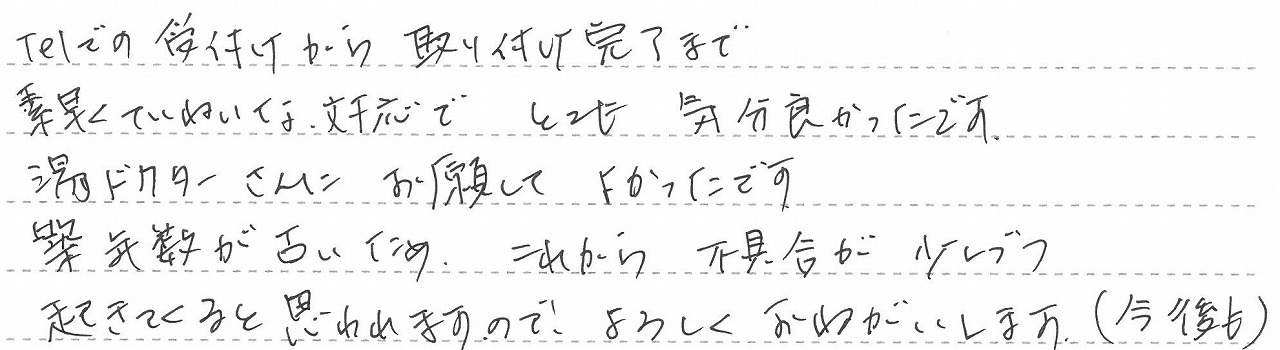 Telでの受付けから 取り付け完了まで
素早くていねいな対応で とても 気分良かったです。
湯ドクターさんに お願して よかったです
築年数が古いため、これから 不具合が 少しづつ
起きてくると思われますので よろしく おねがいします。(今後も)